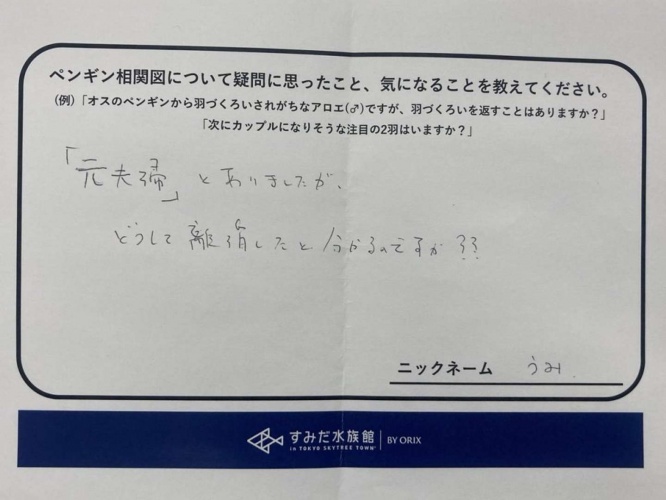 ペンギン相関図について疑問に思ったこと、気になることを教えてください。
(例)「オスのペンギンから羽づくろいされがちなアロエ(♂)ですが、羽づくろいを返すことはありますか?」
「次にカップルになりそうな注目の2羽はいますか?」
「元夫婦」とありましたが、
どうして離婚したと分かるのですか??
ニックネーム うみ
すみだ水族館 BY ORIX
in TOKYO SKYTREE TOWN®